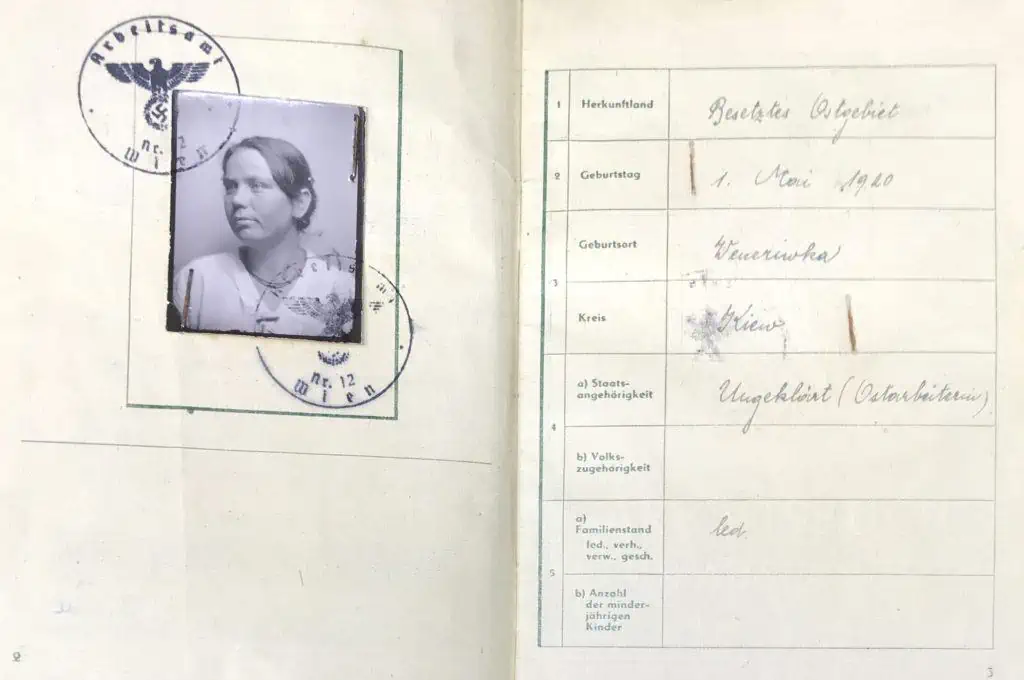 Arbeitsamt
nr. 12
Wien
Arbeitsamt
nr. 12
Wien
2
1 Herkunftland Besetztes Ostgebiet
2 Geburtstag 1. Mai 1920
3
Geburtsort Weneriwka
Kreis Kiew
4
a) Staats-
angehörigkeit Ungeklärt (Ostarbeiterin)
b) Volks-
zugehörigkeit
5
a)
Familienstand led.
led., verh.,
verw., gesch.
b) Anzahl
der minder-
jährigen
Kinder
3